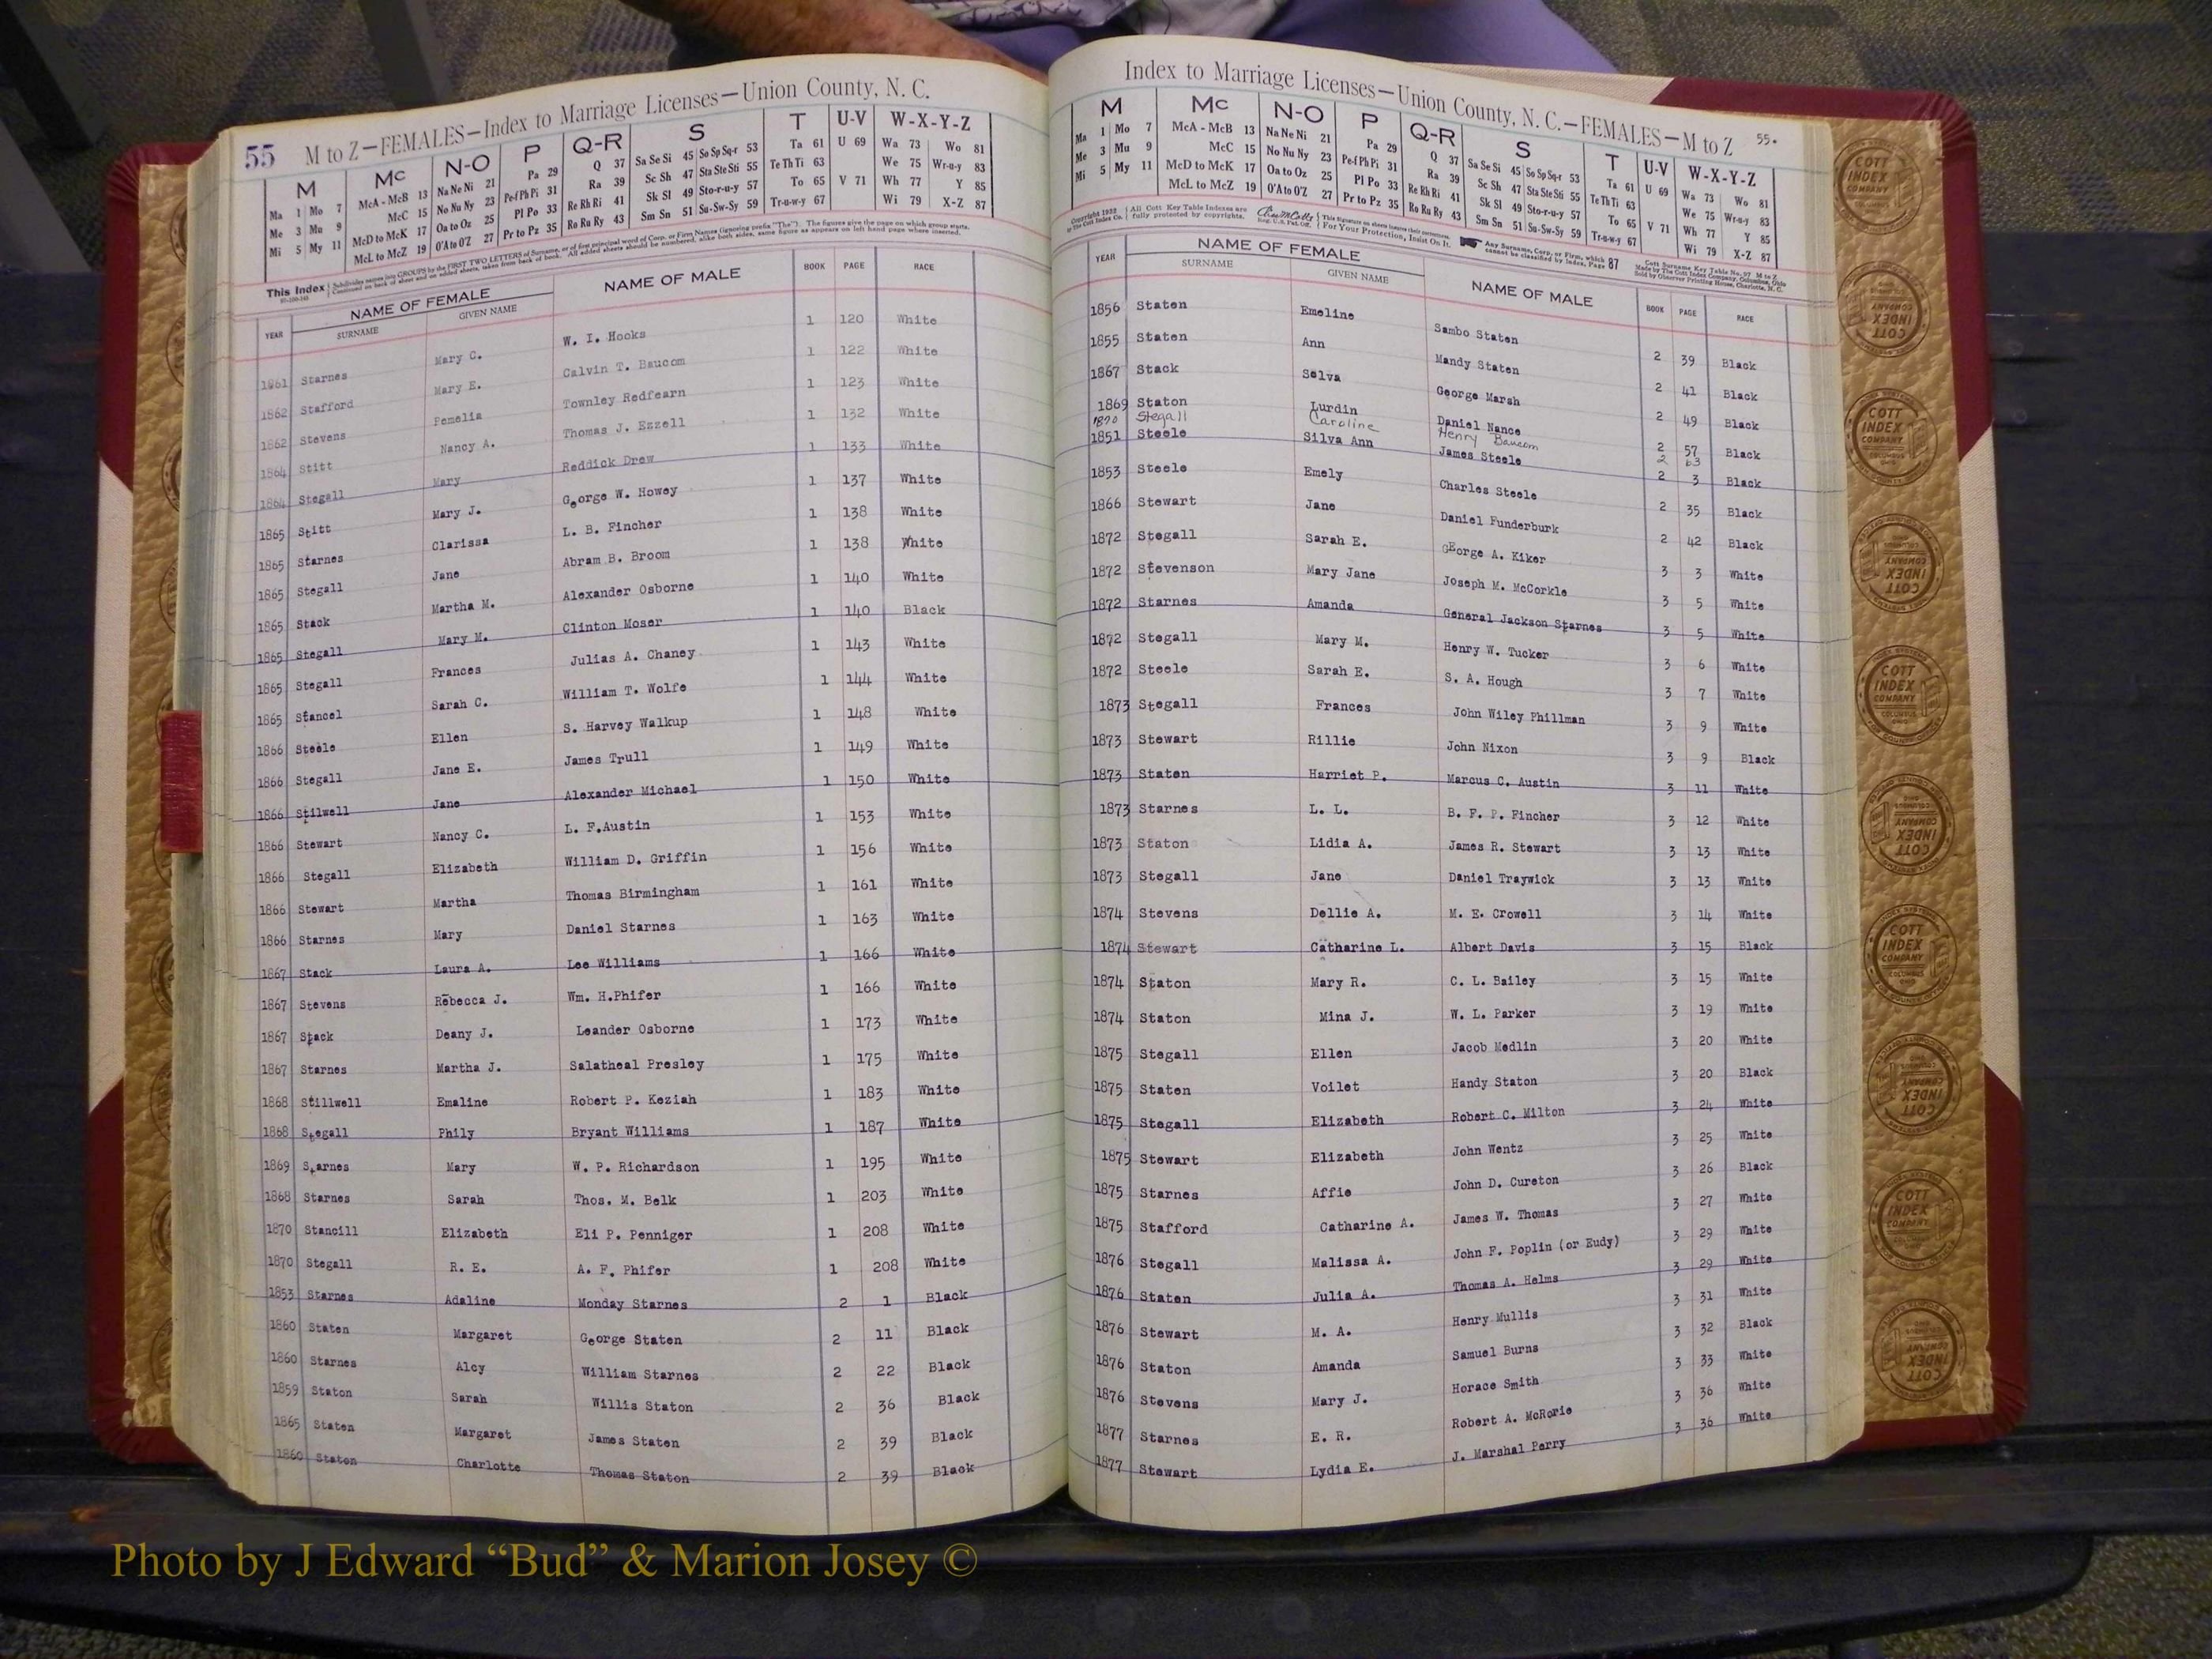 55 M to Z—FEMALES—Index to Marriage Licenses—Union County, N. C.
M Mc N-O P Q-R S T U-V W-X-Y-Z
Ma 1 Mo 7 McA - McB 13 Na Ne Ni 21 Pa 29 Q 37 Sa Se Si 45 So Sp Sq-r 53 Ta 61 U 69 Wa 73 Wo 81
Me 3 Mu 9 McC 15 No Nu Ny 23 Pe-f Ph Pi 31 Ra 39 Sc Sh 47 Sta Ste Sti 55 Te Th Ti 63 We 75 Wr-u-y 83
Mi 5 My 11 McD to McK 17 Oa to Oz 25 Pl Po 33 Re Rh Ri 41 Sk Sl 49 Sto-r-u-y 57 To 65 V 71 Wh 77 Y 85
McL to McZ 19 O'A to O'Z 27 Pr to Pz 35 Ro Ru Ry 43 Sm Sn 51 Su-Sw-Sy 59 Tr-u-w-y 67 Wi 79 X-Z 87
This Index
YEAR NAME OF FEMALE NAME OF MALE BOOK PAGE RACE
SURNAME GIVEN NAME
1861 Starnes Mary C. W. I. Hooks 1 120 White
1862 Stafford Mary E. Calvin T. Baucom 1 122 White
1862 Stevens Pemelia Townley Redfearn 1 123 White
1864 Stitt Nancy A. Thomas J. Ezzell 1 132 White
1864 Stegall Mary Reddick Drew 1 133 White
1865 Stitt Mary J. George W. Howey 1 137 White
1865 Starnes Clarissa L. B. Fincher 1 138 White
1865 Stegall Jane Abram B. Broom 1 138 White
1865 Stack Martha M. Alexander Osborne 1 140 White
1865 Stegall Mary M. Clinton Moser 1 140 Black
1865 Stegall Frances Julias A. Chaney 1 143 White
1865 Stancel Sarah C. William T. Wolfe 1 144 White
1866 Steele Ellen S. Harvey Walkup 1 148 White
1866 Stegall Jane E. James Trull 1 149 White
1866 Stilwell Jane Alexander Michael 1 150 White
1866 Stewart Nancy C. L. F.Austin 1 153 White
1866 Stegall Elizabeth William D. Griffin 1 156 White
1866 Stewart Martha Thomas Birmingham 1 161 White
1866 Starnes Mary Daniel Starnes 1 163 White
1867 Stack Laura A. Lee Williams 1 166 White
1867 Stevens Rebecca J. Wm. H.Phifer 1 166 White
1867 Stack Deany J. Leander Osborne 1 173 White
1867 Starnes Martha J. Salatheal Presley 1 175 White
1868 Stillwell Emaline Robert P. Keziah 1 183 White
1868 Stegall Phily Bryant Williams 1 187 White
1869 Starnes Mary W. P. Richardson 1 195 White
1868 Starnes Sarah Thos. M. Belk 1 203 White
1870 Stancill Elizabeth Eli P. Penniger 1 208 White
1870 Stegall R. E. A. F. Phifer 1 208 White
1853 Starnes Adaline Monday Starnes 2 1 Black
1860 Staten Margaret George Staten 2 11 Black
1860 Starnes Alcy William Starnes 2 22 Black
1859 Staton Sarah Willis Staton 2 36 Black
1865 Staten Margaret James Staten 2 39 Black
1860 Staton Charlotte Thomas Staton 2 39 Black
Index to Marriage Licenses—Union County, N. C.—FEMALES—M to Z 55.
M Mc N-O P Q-R S T U-V W-X-Y-Z
Ma 1 Mo 7 McA - McB 13 Na Ne Ni 21 Pa 29 Q 37 Sa Se Si 45 So Sp Sq-r 53 Ta 61 U 69 Wa 73 Wo 81
Me 3 Mu 9 McC 15 No Nu Ny 23 Pe-f Ph Pi 31 Ra 39 Sc Sh 47 Sta Ste Sti 55 Te Th Ti 63 We 75 Wr-u-y 83
Mi 5 My 11 McD to McK 17 Oa to Oz 25 Pl Po 33 Re Rh Ri 41 Sk Sl 49 Sto-r-u-y 57 To 65 V 71 Wh 77 Y 85
McL to McZ 19 O'A to O'Z 27 Pr to Pz 35 Ro Ru Ry 43 Sm Sn 51 Su-Sw-Sy 59 Tr-u-w-y 67 Wi 79 X-Z 87
YEAR NAME OF FEMALE NAME OF MALE BOOK PAGE RACE
SURNAME GIVEN NAME
1856 Staten Emeline Sambo Staten 2 39 Black
1855 Staten Ann Mandy Staten 2 41 Black
1867 Stack Selva George Marsh 2 49 Black
1869 Staton Lurdin Daniel Nance 2 57 Black
1870 Stegall Caroline Henry Baucom 2 63
1851 Steele Silva Ann James Steele 2 3 Black
1853 Steele Emely Charles Steele 2 35 Black
1866 Stewart Jane Daniel Funderburk 2 42 Black
1872 Stegall Sarah E. GEorge A. Kiker 3 3 White
1872 Stevenson Mary Jane Joseph M. McCorkle 3 5 White
1872 Starnes Amanda General Jackson Starnes 3 5 White
1872 Stegall Mary M. Henry W. Tucker 3 6 White
1872 Steele Sarah E. S. A. Hough 3 7 White
1873 Stegall Frances John Wiley Phillman 3 9 White
1873 Stewart Rillie John Nixon 3 9 Black
1873 Staten Harriet P. Marcus C. Austin 3 11 White
1873 Starnes L. L. B. F. P. Fincher 3 12 White
1873 Staton Lidia A. James R. Stewart 3 13 White
1873 Stegall Jane Daniel Traywick 3 13 White
1874 Stevens Dellie A. M. E. Crowell 3 14 White
1874 Stewart Catharine L. Albert Davis 3 15 Black
1874 Staton Mary R. C. L. Bailey 3 15 White
1874 Staton Mina J. W. L. Parker 3 19 White
1875 Stegall Ellen Jacob Medlin 3 20 White
1875 Staten Voilet Handy Staton 3 20 Black
1875 Stegall Elizabeth Robert C. Milton 3 24 White
1875 Stewart Elizabeth John Wentz 3 25 White
1875 Starnes Affie John D. Cureton 3 26 Black
1875 Stafford Catharine A. James W. Thomas 3 27 White
1876 Stegall Malissa A. John F. Poplin (or Eudy) 3 29 White
1876 Staten Julia A. Thomas A. Helms 3 29 White
1876 Stewart M. A. Henry Mullis 3 31 White
1876 Staton Amanda Samuel Burns 3 32 Black
1876 Stevens Mary J. Horace Smith 3 33 White
1877 Starnes E. R. Robert A. McRorie 3 36 White
1877 Stewart Lydia E. J. Marshal Perry 3 36 White
COTT INDEX COMPANY
Photo by J Edward “Bud” & Marion Josey ©